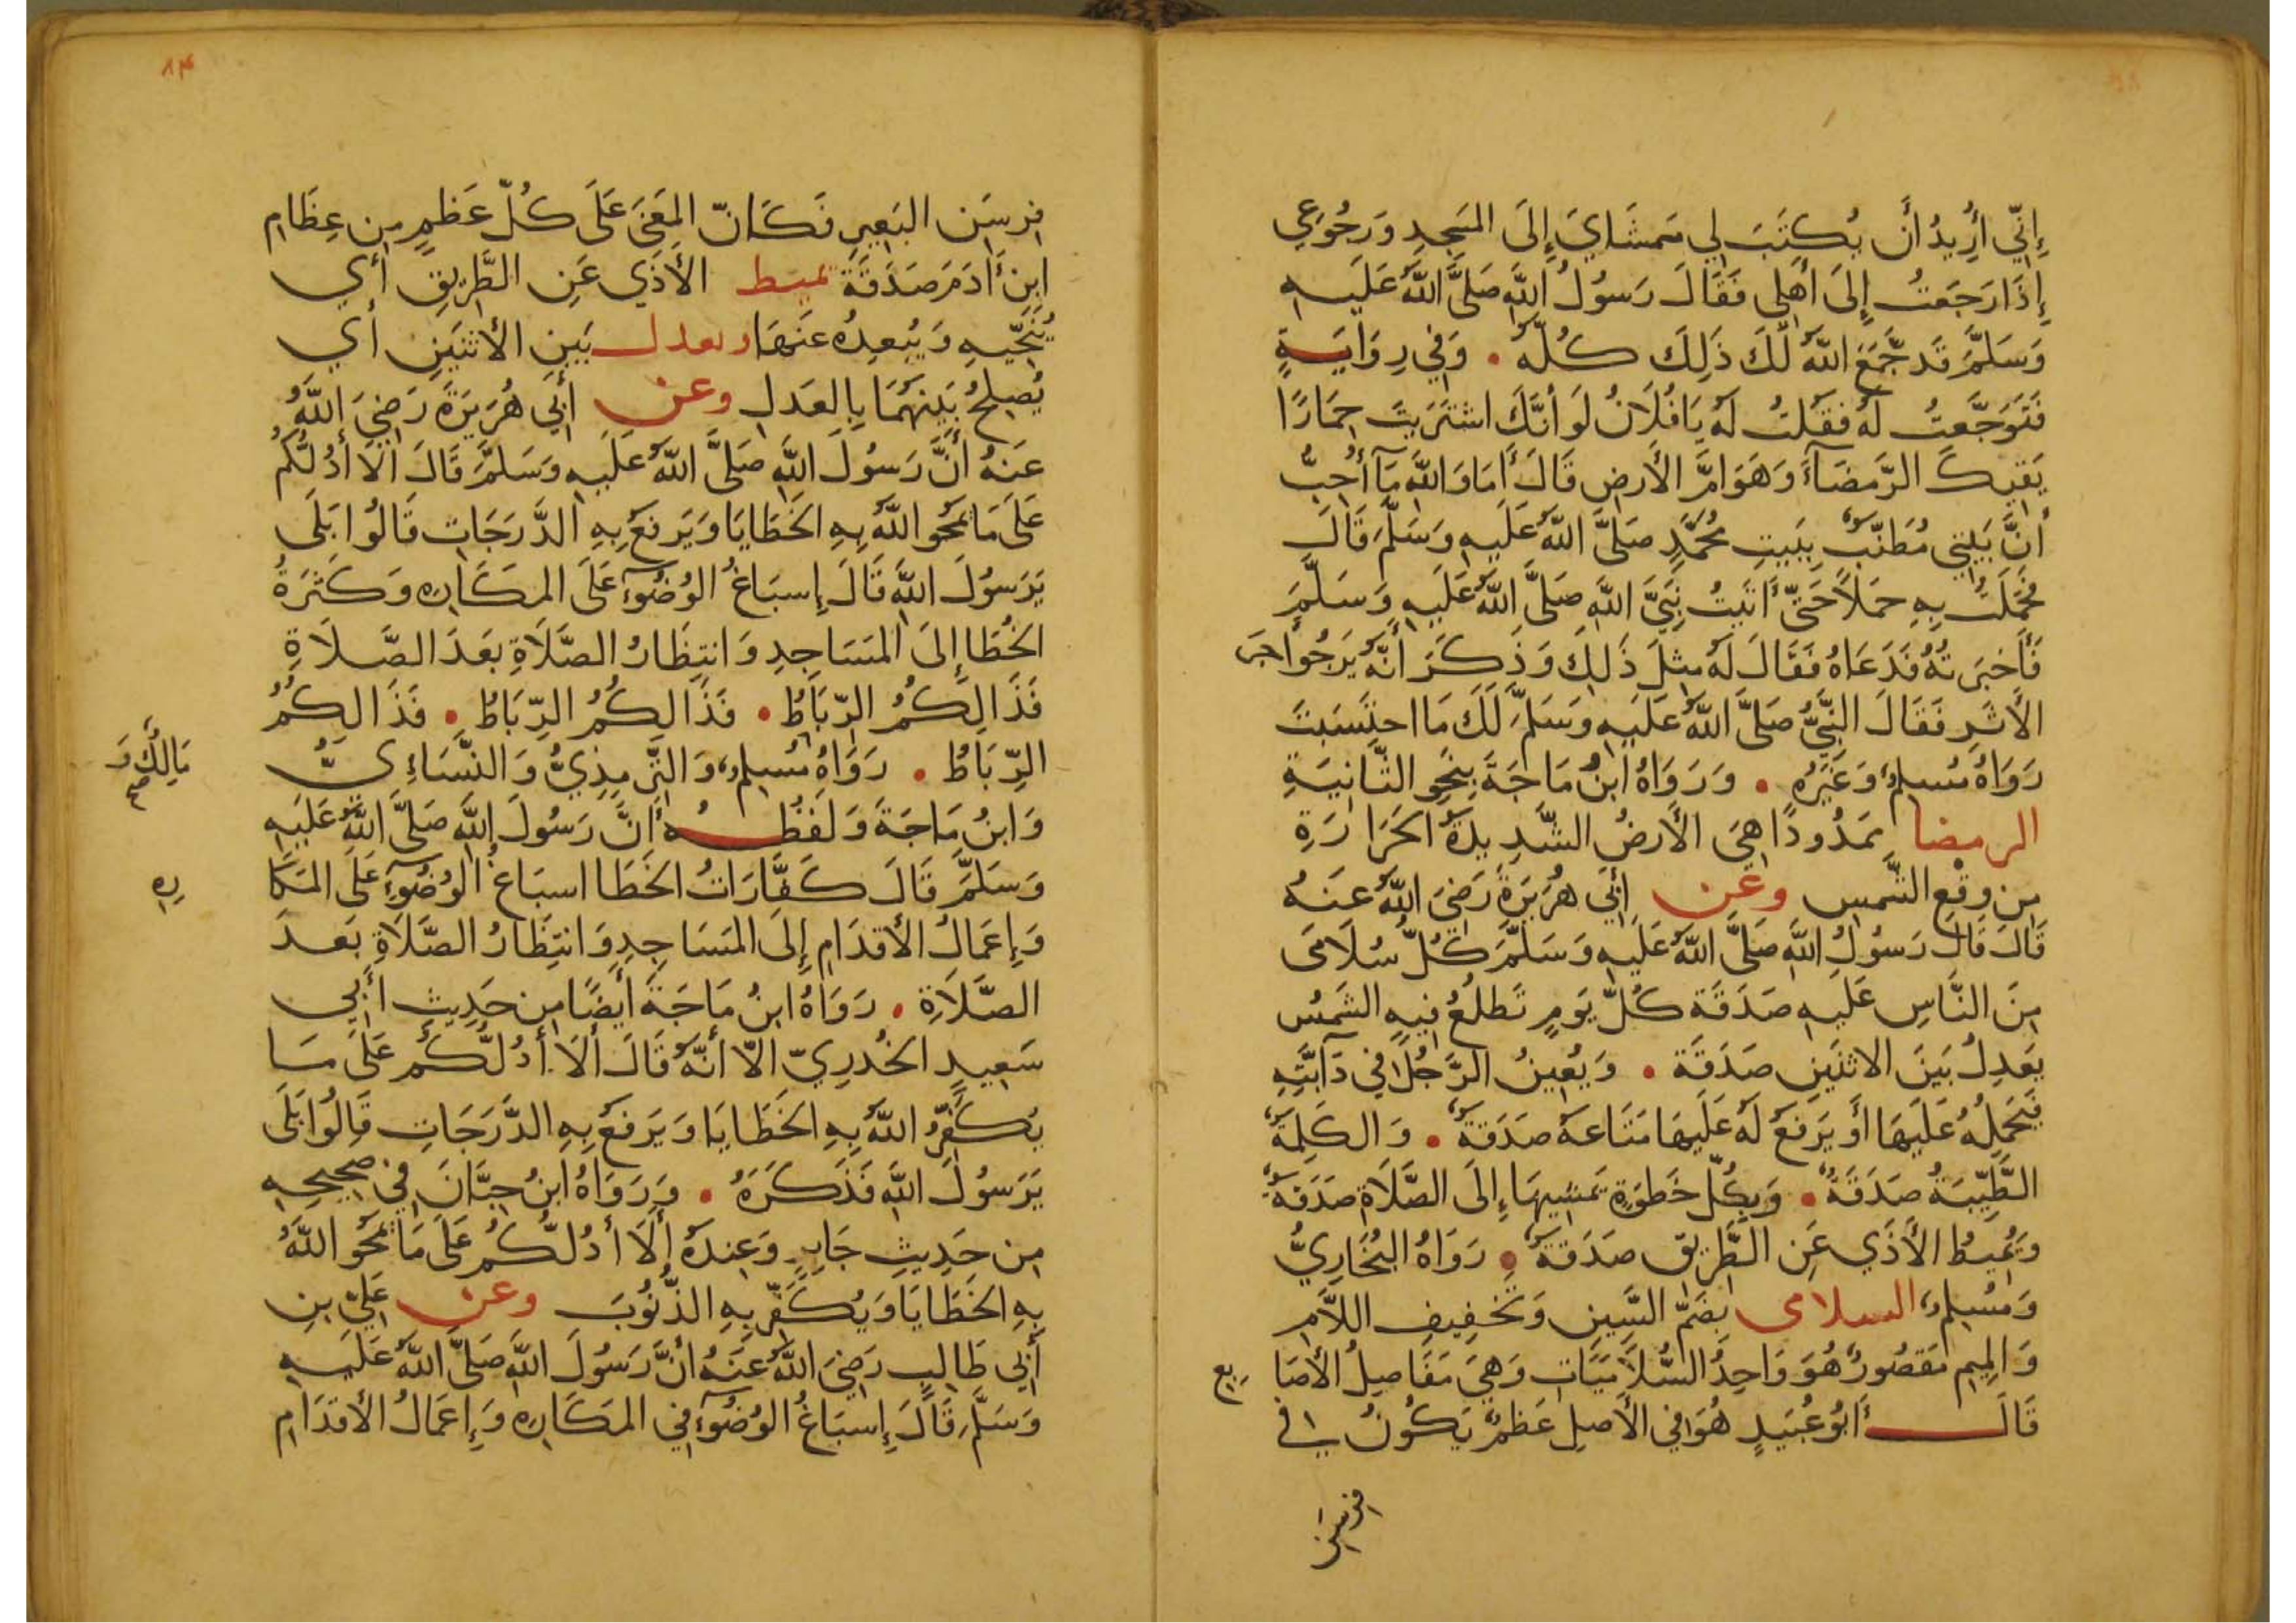 إِنِّي أُرِيدُ أَن يُكتَبَ لِي مَمشَايَ إِلَى المَسجِدِ وَرُجُوعِي
إِذَا رَجَعتُ إِلَى أَهلِي فَقَالَ رَسُولُ اللَّهِ صَلَّى اللَّهُ عَلَيهِ
وَسَلَّمَ قَد جَمَعَ اللَّهُ لَكَ ذَلِكَ كُلَّهُ • وَفِي رِوَايَةٍ
فَتَوَجَّعتُ لَهُ فَقُلتُ لَهُ يَا فُلَانُ لَو أَنَّكَ اشتَرَيتَ حِمَارًا
يَقِيكَ الرَّمضَآءَ وَهَوَامَّ الأَرضِ قَالَ أَمَا وَاللَّهِ مَآ أُحِبُّ
أَنَّ بَيتِي مُطَنَّبٌ بِبَيتِ مُحَمَّدٍ صَلَّى اللَّهُ عَلَيهِ وَسَلَّمَ قَالَ
فَحَمَلتُ بِهِ حَملًا حَتَّى أَتَيتُ نَبِيَّ اللَّهِ صَلَّى اللَّهُ عَلَيهِ وَسَلَّمَ
فَأَخبَرتُهُ فَدَعَاهُ فَقَالَ لَهُ مِثلَ ذَلِكَ وَذَكَرَ أَنَّهُ يَرجُوا أَجرَ
الأَثَرِ فَقَالَ النَّبِيُّ صَلَّى اللَّهُ عَلَيهِ وَسَلَّمَ لَكَ مَا احتَسَبتَ
رَوَاهُ مُسلِمٌ وَغَيرُه • وَرَوَاهُ ابنُ مَاجَةَ بِنَحوِ الثَّانِيَةِ
الرمضا مَمدُودًا هِيَ الأَرضُ الشَّدِيدَةُ الحَرَارَةِ
مِن وَقعِ الشَّمسِ وعن أَبِي هُرَيرَةَ رَضِيَ اللَّهُ عَنهُ
قَالَ قَالَ رَسُولُ اللَّهِ صَلَّى اللَّهُ عَلَيهِ وَسَلَّمَ كُلُّ سُلَامَى
مِنَ النَّاسِ عَلَيهِ صَدَقَة كُلَّ يَومٍ تَطلُعُ فِيهِ الشَمسُ
يَعدِلُ بَينَ الاثنَينِ صَدَقَة • وَيُعِينُ الرَّجُلَ فِي دَآبَّتِهِ
فَيَحمِلُهُ عَلَيهَا أَو يَرفَعُ لَهُ عَلَيهَا مَتَاعَهُ صَدَقَةٌ • وَالكَلِمَةُ
الطَّيِّبَةُ صَدَقَةٌ • وَبِكُلِّ خَطوَةٍ يَمشِيهَا إِلَى الصَّلَاةِ صَدَقَةٌ
وَيُمِيطُ الأَذَي عَنِ الطَّرِيقِ صَدَقَةٌ • رَوَاهُ البُخَارِيُّ
وَمُسلِمٌ السلامى بِضَمِّ السِّينِ وَتَخفِيفِ اللَّامِ
وَالمِيمِ مَقصُورٌ هُوَ وَاحِدُ السُّلَامَيَاتِ وَهِيَ مَفَاصِلُ الأَصَابِع
قَالَ أَبُو عُبَيدٍ هُوَ فِي الأَصلِ عَظمٌ يَكُونُ في
فرسن
٨٣
فِرسَن البَعِيرِ فَكَانَّ المَعنَى عَلَى كُلِّ عَظمٍ مِن عِظَامِ
ابنِ أَدَمَ صَدَقَة يميط الأَذَي عَنِ الطَّرِيقِ أَي
يُنَحِّيهِ وَيُبعِدُهُ عَنهَا ويعدل بَينِ الأثنَينِ أَي
يُصلِحُ بَينَهُمَا بِالعَدلِ وعن أَبِي هُرَيرَةَ رَضِيَ اللَّهُ
عَنهُ أَنَّ رَسُولَ اللَّهِ صَلَّى اللَّهُ عَلَيهِ وَسَلَّمَ قَالَ أَلَا أَدُلُّكُم
عَلَى مَا يَمحُو اللَّهُ بِهِ الخَطَايَا وَيَرفَعُ بِهِ الدَّرَجَاتِ قَالُوا بَلَى
يَرَسُولَ اللَّهِ قَالَ إِسبَاغُ الوُضُوءِ عَلَى المَكَارِهِ وَكَثرَةُ
الخُطَا إِلَى المَسَاجِدِ وَانتِظَارُ الصَّلَاةِ بَعدَ الصَّلَاةِ
فَذَالِكُمُ الرِّبَاطُ • فَذَالِكُمُ الرِّبَاطُ • فَذَالِكُمُ
الرِّبَاطُ • رَوَاهُ مَالِكٌ وَ مُسلِمٌ وَالتِّرمِذِيُّ وَالنَّسَاءِيُّ
وَابنُ مَاجَةَ وَلَفظُهُ أَنَّ رَسُولَ اللَّهِ صَلَّى اللَّهُ عَلَيهِ
وَسَلَّمَ قَالَ كَفَّارَاتُ الخَطَا اسبَاغُ الوُضُوءِ عَلَى المَكَاره
وَإِعمَالُ الأَقدَامِ إِلَى المَسَاجِدِ وَانتِظَارُ الصَّلَاةِ بَعدَ
الصَّلَاةِ • رَوَاهُ ابنُ مَاجَةَ أَيضًا مِن حَدِيثِ أَبِي
سَعِيدٍ الخُدرِيّ الّا أَنَّهُ قَالَ أَلَا أَدُلُّكُم عَلَى مَا
يُكَفِّرُ اللَّهُ بِهِ الخَطَايَا وَيَرفَعُ بِهِ الدَّرَجَاتِ قَالُوا بَلَى
يَرَسُولَ اللَّهِ فَذَكَرَهُ • وَرَوَاهُ ابنُ حِبَّانَ فِي صَحِيحِهِ
مِن حَدِيثِ جَابِرٍ وَعِندَهُ أَلَا أَدُلُّكُم عَلَى مَا يَمحُو اللَّهُ
بِهِ الخَطَايَا وَيُكَفِّرُ بِهِ الذُّنُوبَ وعن عَلِيِّ بنِ
أَبِي طَالِبٍ رَضِيَ اللَّهُ عَنهُ أَنَّ رَسُولَ اللَّهِ صَلَّى اللَّهُ عَلَيهِ
وَسَلَّمَ قَالَ إِسبَاغُ الوُضُوءِ فِي المَكَارِهِ وَإِعمَالُ الأَقدَامِ